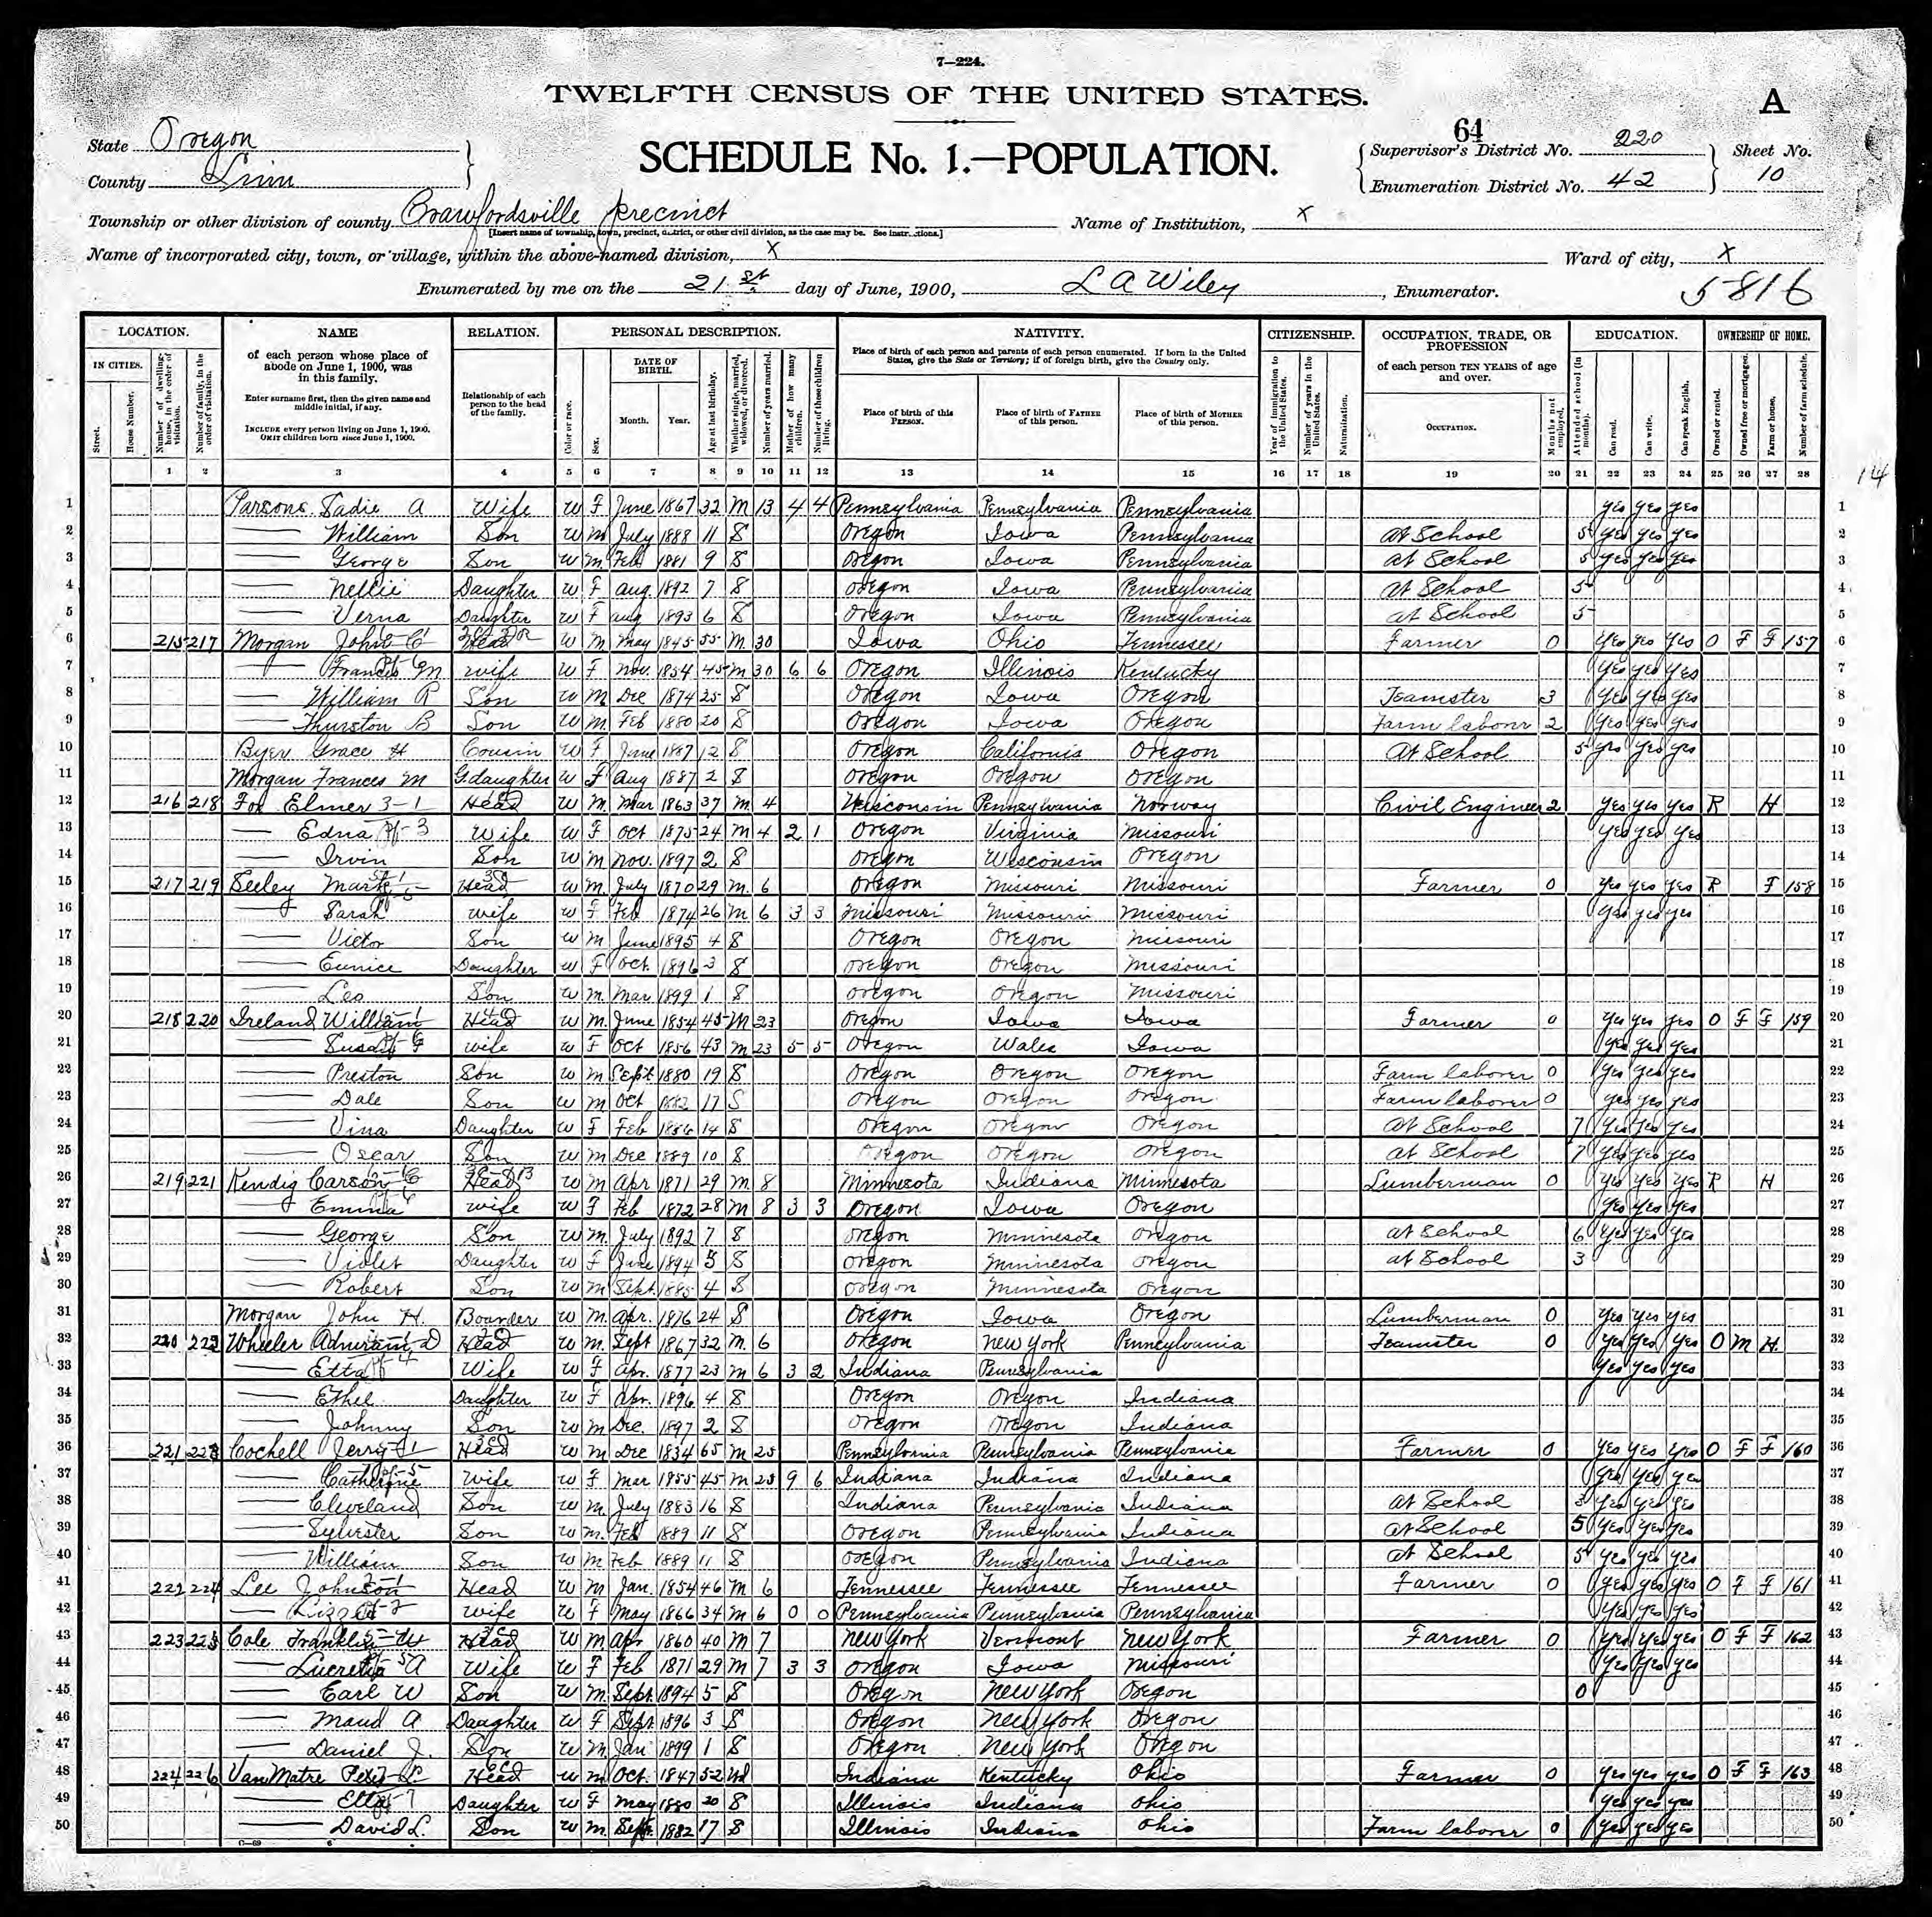 7—224.
TWELFTH CENSUS OF THE UNITED STATES.
A
State Oregon
County Linn
SCHEDULE No. 1.—POPULATION.
64
Supervisor's District No. 220
Enumeration District No. 42
Sheet No. 10
Township or other division of county Crawfordsville precinct
[Insert name of township, town, precinct, district, or other civil division, as the case may be. See instructions.]
Name of Institution, X
Name of incorporated city, town, or village, within the above-named division, X
Ward of city, X
Enumerated by me on the 21st day of June, 1900, L A Wiley, Enumerator.
5816
LOCATION. NAME RELATION. PERSONAL DESCRIPTION. NATIVITY. CITIZENSHIP. OCCUPATION, TRADE, OR PROFESSION EDUCATION. OWNERSHIP OF HOME.
IN CITIES. Street. House Number.
Number of dwelling-house, in the order of visitation.
Number of family, in the order of visitation.
of each person whose place of abode on June 1, 1900, was in this family.
Enter surname first, then the given name and middle initial, if any.
INCLUDE every person living on June 1, 1900. OMIT children born since June 1, 1900.
Relationship of each person to the head of the family.
Color or race. Sex. DATE OF BIRTH. Month. Year. Age at last birthday.
Whether single, married, widowed, or divorced.
Number of years married.
Mother of how many children.
Number of these children living.
Place of birth of each person and parents of each person enumerated. If born in the United States, give the State or Territory; if of foreign birth, give the Country only.
Place of birth of this PERSON.
Place of birth of FATHER of this person.
Place of birth of MOTHER of this person.
Year of immigration to the United States.
Number of years in the United States.
Naturalization.
of each person TEN YEARS of age and over.
OCCUPATION. Months not employed.
Attended school (in months). Can read. Can write. Can speak English.
Owned or rented. Owned free or mortgaged. Farm or house. Number of farm schedule.
1 2 3 4 5 6 7 8 9 10 11 12 13 14 15 16 17 18 19 20 21 22 23 24 25 26 27 28
14
1 Parsons Sadie A Wife W F June 1867 32 M 13 4 4 Pennsylvania Pennsylvania Pennsylvania yes yes yes 1
2 — William Son W M July 1888 11 S Oregon Iowa Pennsylvania At School 5 yes yes yes 2
3 — George Son W M Feb 1881 9 S Oregon Iowa Pennsylvania at School 5 yes yes yes 3
4 — Nellie Daughter W F aug. 1892 7 S Oregon Iowa Pennsylvania At School 5 4
5 — Verna Daughter W F aug 1893 6 S Oregon Iowa Pennsylvania at School 5 5
6 215 217 Morgan John C Head W M May 1845 55 M 30 Iowa Ohio Tennessee Farmer 0 yes yes yes O F F 157 6
7 — Frances M wife W F Nov. 1854 45 M 30 6 6 Oregon Illinois Kentucky yes yes yes 7
8 — William R Son W M Dec 1874 25 S Oregon Iowa Oregon Teamster 3 yes yes yes 8
9 — Thurston B Son W M Feb 1880 20 S Oregon Iowa Oregon Farm laborer 2 yes yes yes 9
10 Byer Grace H Cousin W F June 1887 12 S Oregon California Oregon At School 5 yes yes yes 10
11 Morgan Frances M Gdaughter W F Aug 1887 2 S Oregon Oregon Oregon 11
12 216 218 Fox Elmer 3-1 Head W M Mar 1863 37 M 4 Wisconsin Pennsylvania Norway Civil Engineer 2 yes yes yes R H 12
13 — Edna Wife W F Oct 1875 24 M 4 2 1 Oregon Virginia Missouri yes yes yes 13
14 — Irvin Son W M Nov. 1897 2 S Oregon Wisconsin Oregon 14
15 217 219 Seeley Mark Head W M July 1870 29 M 6 Oregon Missouri Missouri Farmer 0 yes yes yes R F 158 15
16 — Sarah wife W F Feb 1874 26 M 6 3 3 Missouri Missouri Missouri yes yes yes 16
17 — Victor Son W M June 1895 4 S Oregon Oregon Missouri 17
18 — Eunice Daughter W F Oct. 1896 3 S Oregon Oregon Missouri 18
19 — Leo Son W M Mar 1899 1 S Oregon Oregon Missouri 19
20 218 220 Ireland William Head W M June 1854 45 M 23 Oregon Iowa Iowa Farmer 0 yes yes yes O F F 159 20
21 — Susan F wife W F Oct 1856 43 M 23 5 5 Oregon Wales Iowa yes yes yes 21
22 — Preston Son W M Sept 1880 19 S Oregon Oregon Oregon Farm laborer 0 yes yes yes 22
23 — Dale Son W M Oct 1882 17 S Oregon Oregon Oregon Farm laborer 0 yes yes yes 23
24 — Vina Daughter W F Feb 1886 14 S Oregon Oregon Oregon At School 7 yes yes yes 24
25 — Oscar Son W M Dec 1889 10 S Oregon Oregon Oregon at School 7 yes yes yes 25
26 219 221 Kendig Carson C Head W M Apr 1871 29 M 8 Minnesota Indiana Minnesota Lumberman 0 yes yes yes R H 26
27 — Emma wife W F Feb 1872 28 M 8 3 3 Oregon Iowa Oregon yes yes yes 27
28 — George Son W M July 1892 7 S Oregon Minnesota Oregon at School 6 yes yes yes 28
29 — Violet Daughter W F June 1894 5 S Oregon Minnesota Oregon at School 3 29
30 — Robert Son W M Sept. 1885 4 S Oregon Minnesota Oregon 30
31 Morgan John H. Boarder W M Apr. 1876 24 S Oregon Iowa Oregon Lumberman 0 yes yes yes 31
32 220 222 Wheeler Adniram D Head W M Sept 1867 32 M 6 Oregon New York Pennsylvania Teamster 0 yes yes yes O M H 32
33 — Etta Wife W F Apr. 1877 23 M 6 3 2 Indiana Pennsylvania yes yes yes 33
34 — Ethel Daughter W F Apr. 1896 4 S Oregon Oregon Indiana 34
35 — Johnny Son W M Dec. 1897 2 S Oregon Oregon Indiana 35
36 221 223 Cochell Jerry Head W M Dec 1834 65 M 25 Pennsylvania Pennsylvania Pennsylvania Farmer 0 yes yes yes O F F 160 36
37 — Catherine Wife W F Mar 1855 45 M 25 9 6 Indiana Indiana Indiana yes yes yes 37
38 — Cleveland Son W M July 1883 16 S Indiana Pennsylvania Indiana At School 3 yes yes yes 38
39 — Sylvester Son W M Feb 1889 11 S Oregon Pennsylvania Indiana at School 5 yes yes yes 39
40 — William Son W M Feb 1889 11 S Oregon Pennsylvania Indiana at School 5 yes yes yes 40
41 222 224 Lee Johnson Head W M Jan. 1854 46 M 6 Tennessee Tennessee Tennessee Farmer 0 yes yes yes O F F 161 41
42 — Lizzie wife W F May 1866 34 M 6 0 0 Pennsylvania Pennsylvania Pennsylvania yes yes yes 42
43 223 225 Cole Franklin W Head W M Apr 1860 40 M 7 New York Vermont New York Farmer 0 yes yes yes O F F 162 43
44 — Lucretia A Wife W F Feb 1871 29 M 7 3 3 Oregon Iowa Missouri yes yes yes 44
45 — Earl W Son W M Sept. 1894 5 S Oregon New York Oregon 0 45
46 — Maud A Daughter W F Sept 1896 3 S Oregon New York Oregon 46
47 — Daniel J. Son W M Jan 1899 1 S Oregon New York Oregon 47
48 224 226 Van Matre Peter Head W M Oct. 1847 52 Wd Indiana Kentucky Ohio Farmer 0 yes yes yes O F F 163 48
49 — Etta Daughter W F May 1880 20 S Illinois Indiana Ohio yes yes yes 49
50 — David L. Son W M Sept. 1882 17 S Illinois Indiana Ohio Farm laborer 0 yes yes yes 50
C-69 6